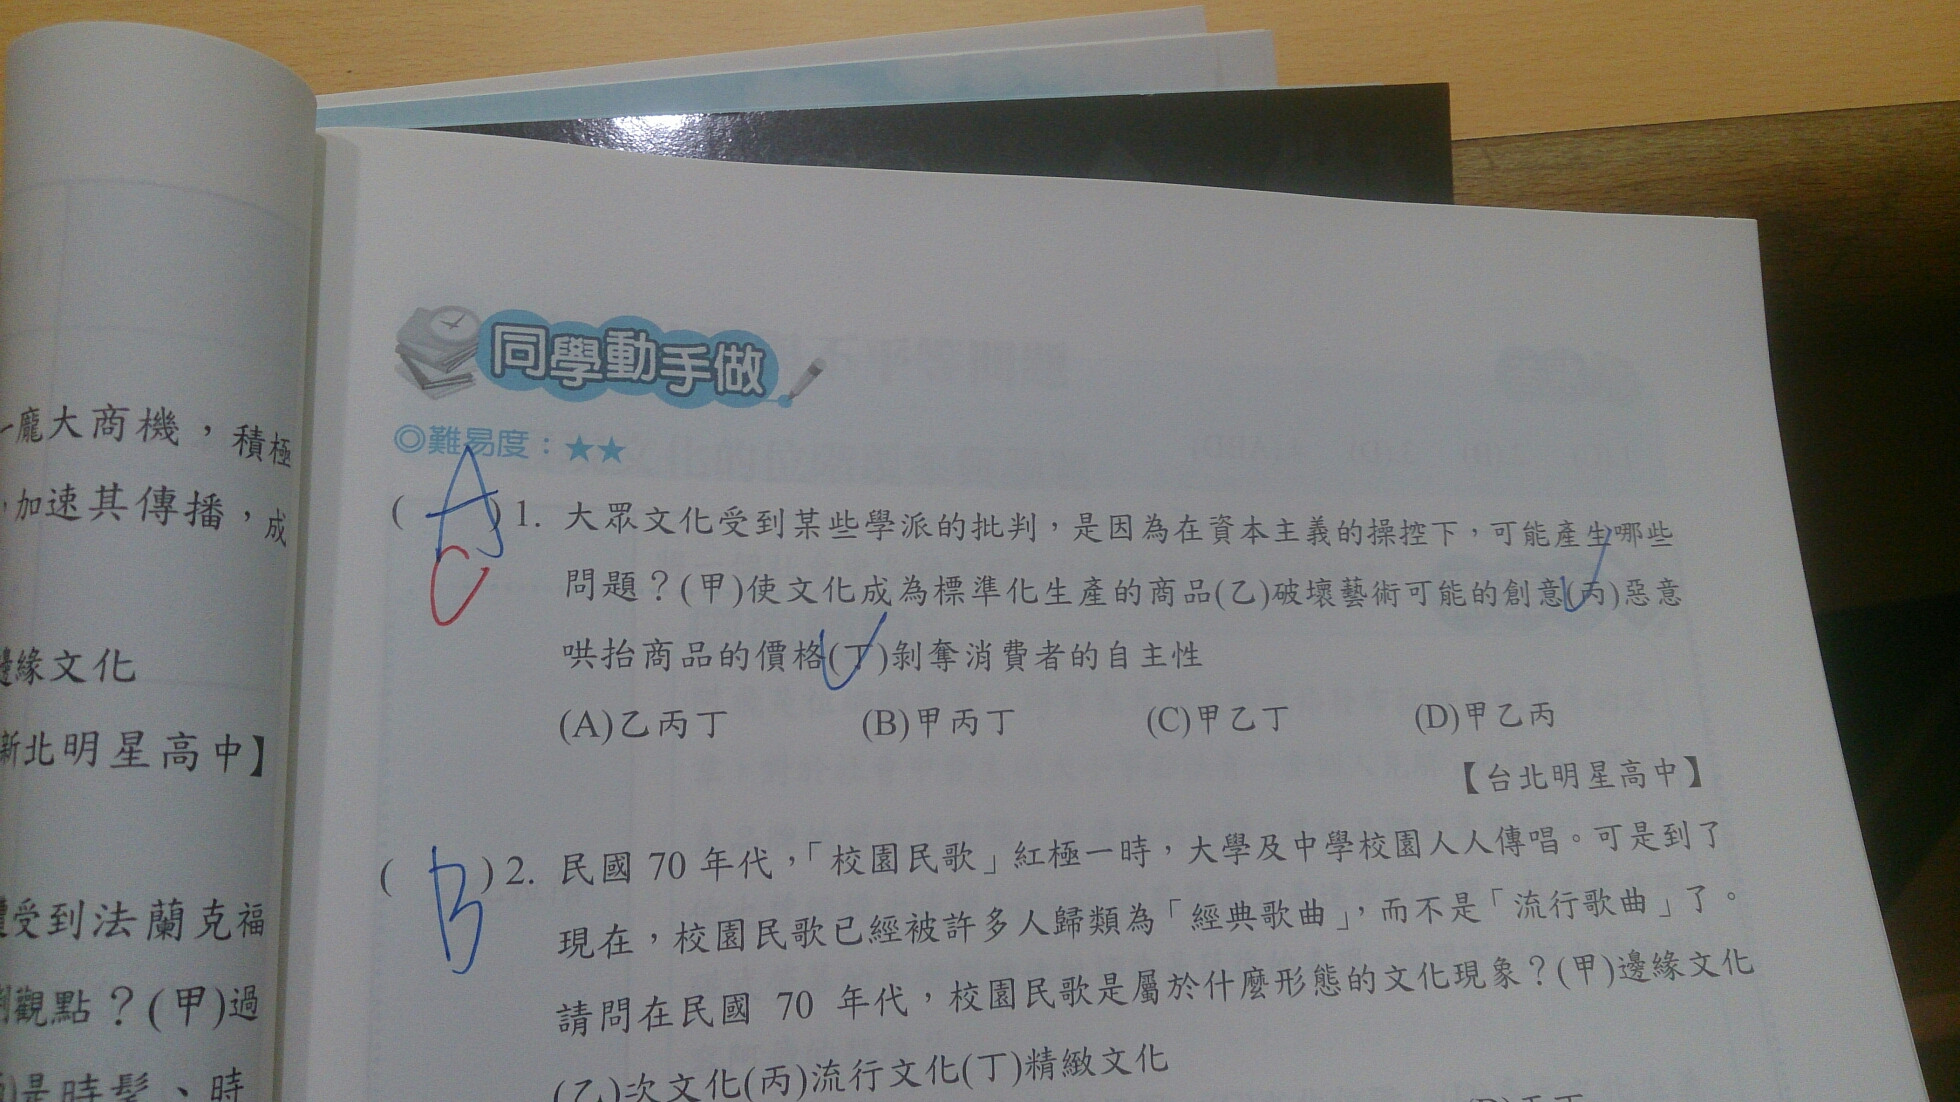 龐大商機，積極
加速其傳播，成
邊緣文化
新北明星高中】
受到法蘭克福
觀點？(甲)過
是時髦、時
同學動手做
◎難易度：★★
(A)1. 大眾文化受到某些學派的批判，是因為在資本主義的操控下，可能產生哪些
C
問題？(甲)使文化成為標準化生產的商品(乙)破壞藝術可能的創意(丙)惡意
哄抬商品的價格(丁)剝奪消費者的自主性
(A)乙丙丁 (B)甲丙丁 (C)甲乙丁 (D)甲乙丙
【台北明星高中】
(B)2. 民國 70 年代，「校園民歌」紅極一時，大學及中學校園人人傳唱。可是到了
現在，校園民歌已經被許多人歸類為「經典歌曲」，而不是「流行歌曲」了。
請問在民國 70 年代，校園民歌是屬於什麼形態的文化現象？(甲)邊緣文化
(乙)次文化(丙)流行文化(丁)精緻文化